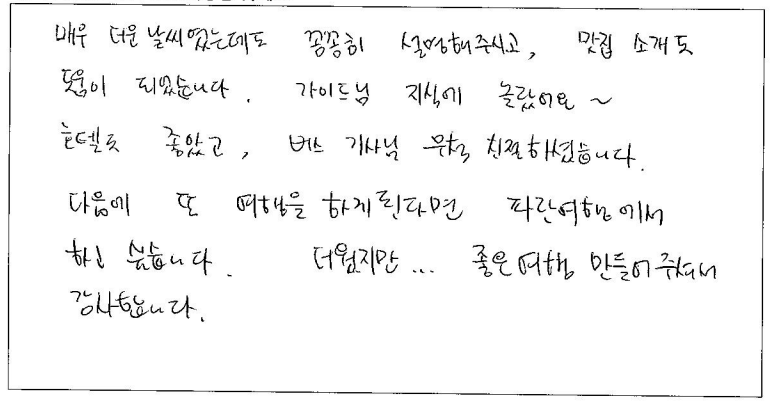 매우 더운 날씨였는데도 꼼꼼히 설명해주시고, 맛집 소개도
도움이 되었습니다. 가이드님 지식에 놀랐어요~
호텔도 좋았고, 버스 기사님 무척 친절하셨습니다.
다음에 또 여행을 하게된다면 파란여행에서
하고 싶습니다. 더웠지만... 좋은여행 만들어주셔서
감사합니다.